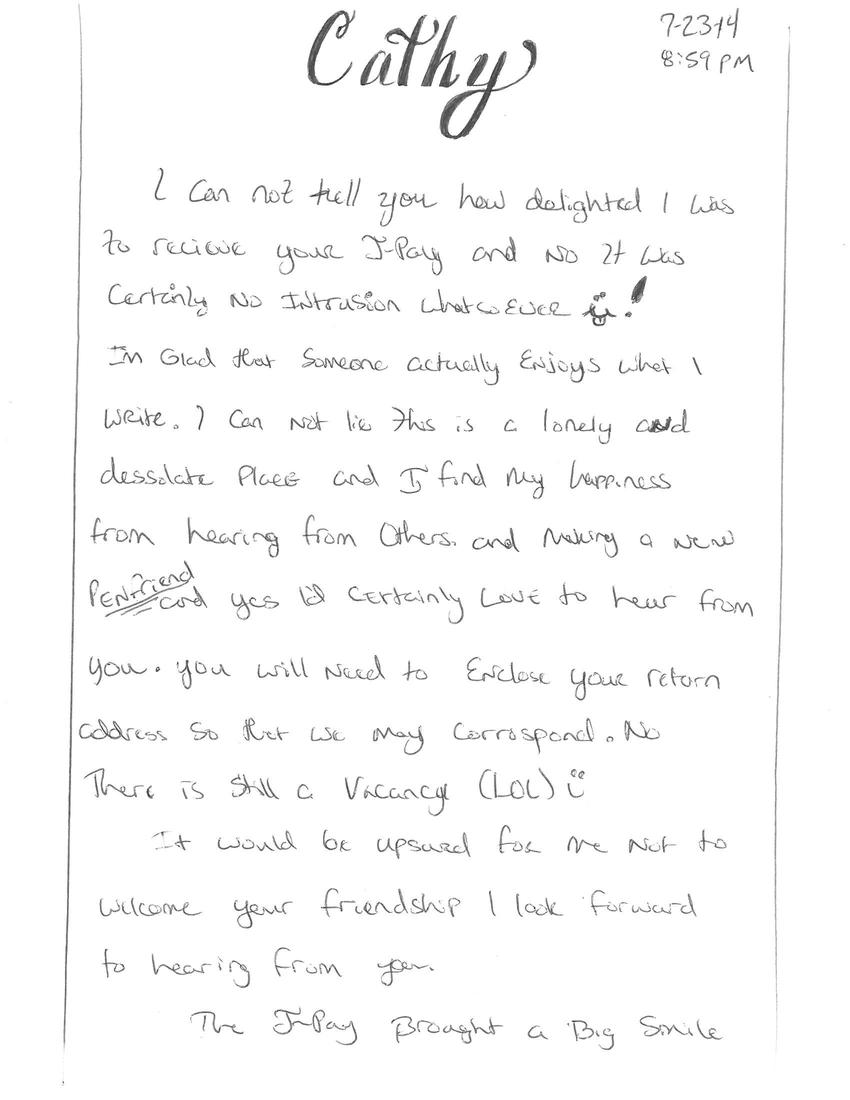 Cathy
7-23-14
8:59 PM
I Can not tell you how delighted I was
to recieve your J-Pay and No It was
Certainly No INtrusion whatsoEVER !
Im Glad that Someone actually Enjoys what I
Write. I Can Not lie this is a lonely and
dessolate PlacE and I find My happiness
from hearing from Others. and Making a NEW
PENfriend
and yes I'd CErtainly LovE to hear from
you. you will Need to Enclose your return
address So that we may Correspond. No
There is Still a Vacancy (LOL)
It would be upsurd for me Not to
welcome your friendship I look forward
to hearing from you.
The J-Pay Brought a Big Smile